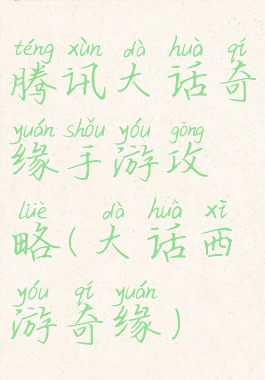 téng xùn dà huà qí
腾讯大话奇
yuán shǒu yóu gōng
缘手游攻
lüè dà huà xī
略(大话西
yóu qí yuán
游奇缘)